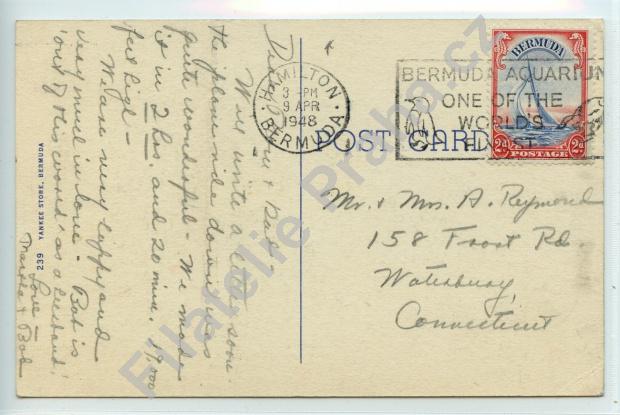 Will write a letter soon.
the plane ride down was
quite wonderful - We made
it in 2 hrs. and 20 min. 17,000
feet high -
We are very happy and
very much in love - Bob is
'out of this world' as a husband!
Love
Martha & Bob
239 YANKEE STORE, BERMUDA
HAMILTON
3 - PM
9 APR
1948
BERMUDA
POST CARD
BERMUDA AQUARIUM
ONE OF THE
WORLD'S
BERMUDA
2d POSTAGE 2d
Mr. & Mrs. A. Reymond
158 Frost Rd.
Waterbury,
Connecticut
Filatelie Praha.cz